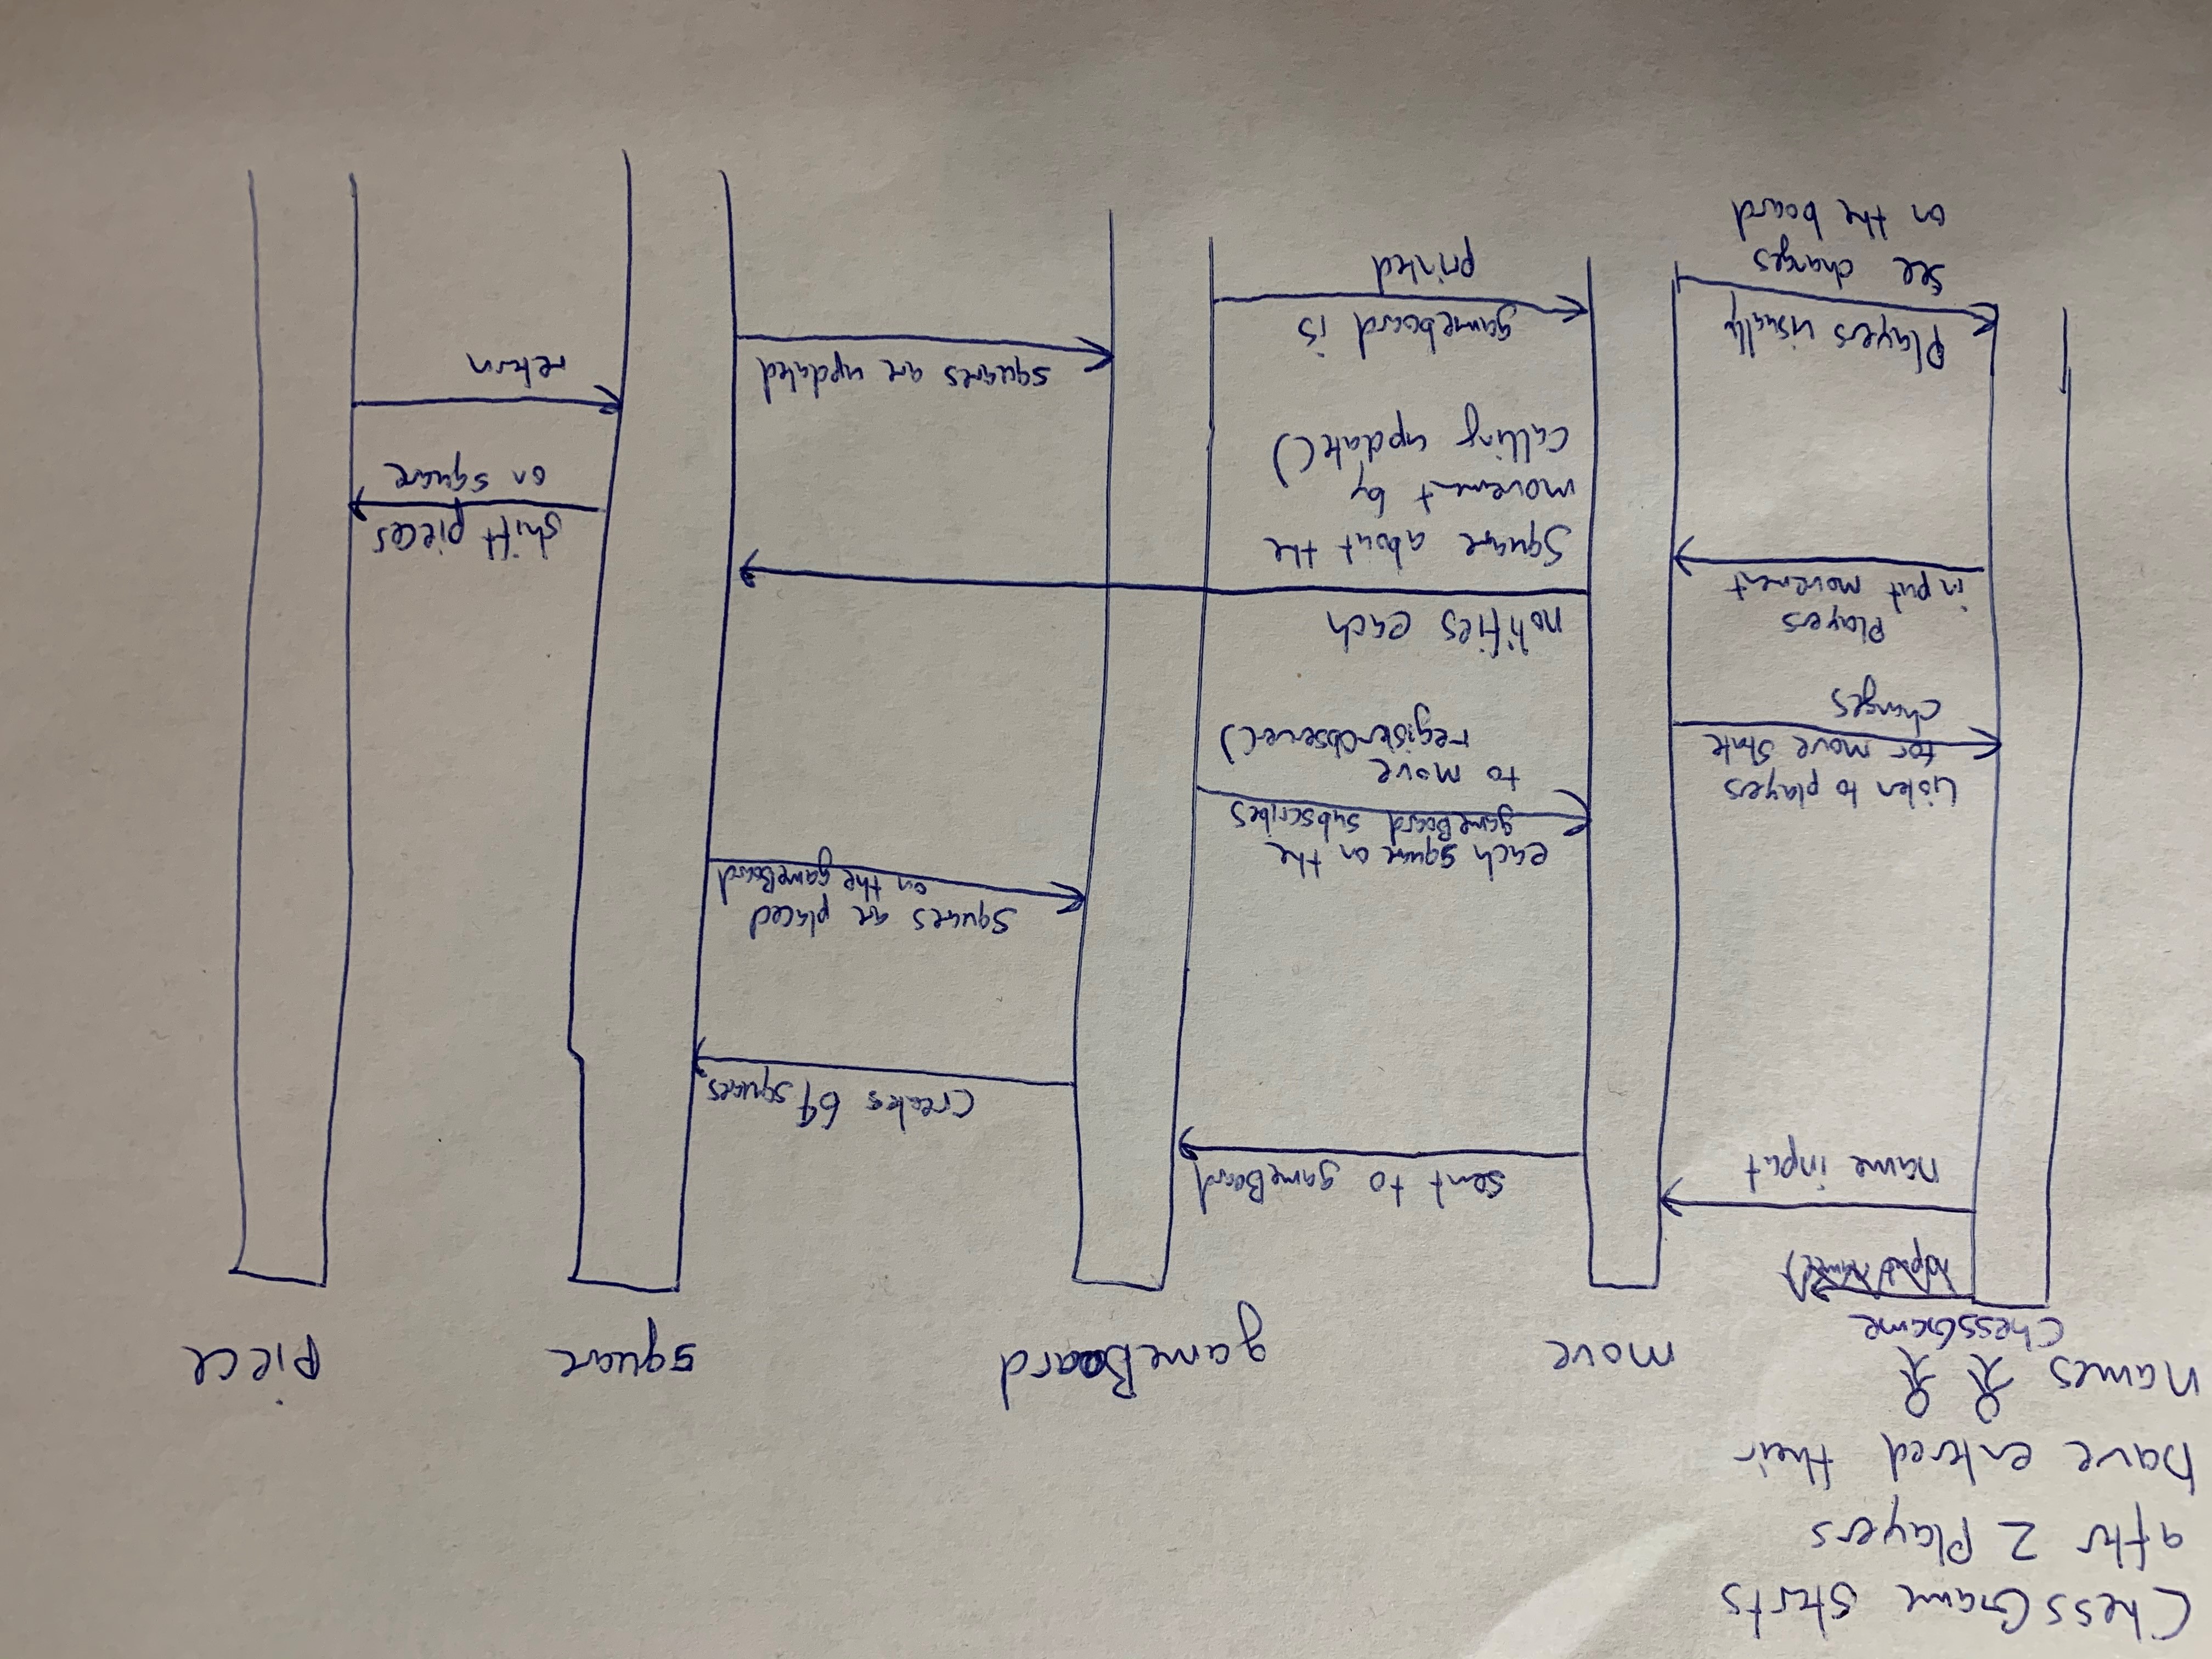 ChessGame starts
after 2 Players
have entered their
names
ChessGame
move
gameBoard
square
piece
name input
sent to gameBoard
creates 64 squares
squares are placed
on the gameBoard
each square on the
gameBoard subscribes
to move
registerObserver()
Listen to players
for move state
changes
Players
input movement
notifies each
Square about the
movement by
calling update()
shift pieces
on square
return
squares are updated
gameboard is
printed
Players visually
see changes
on the board